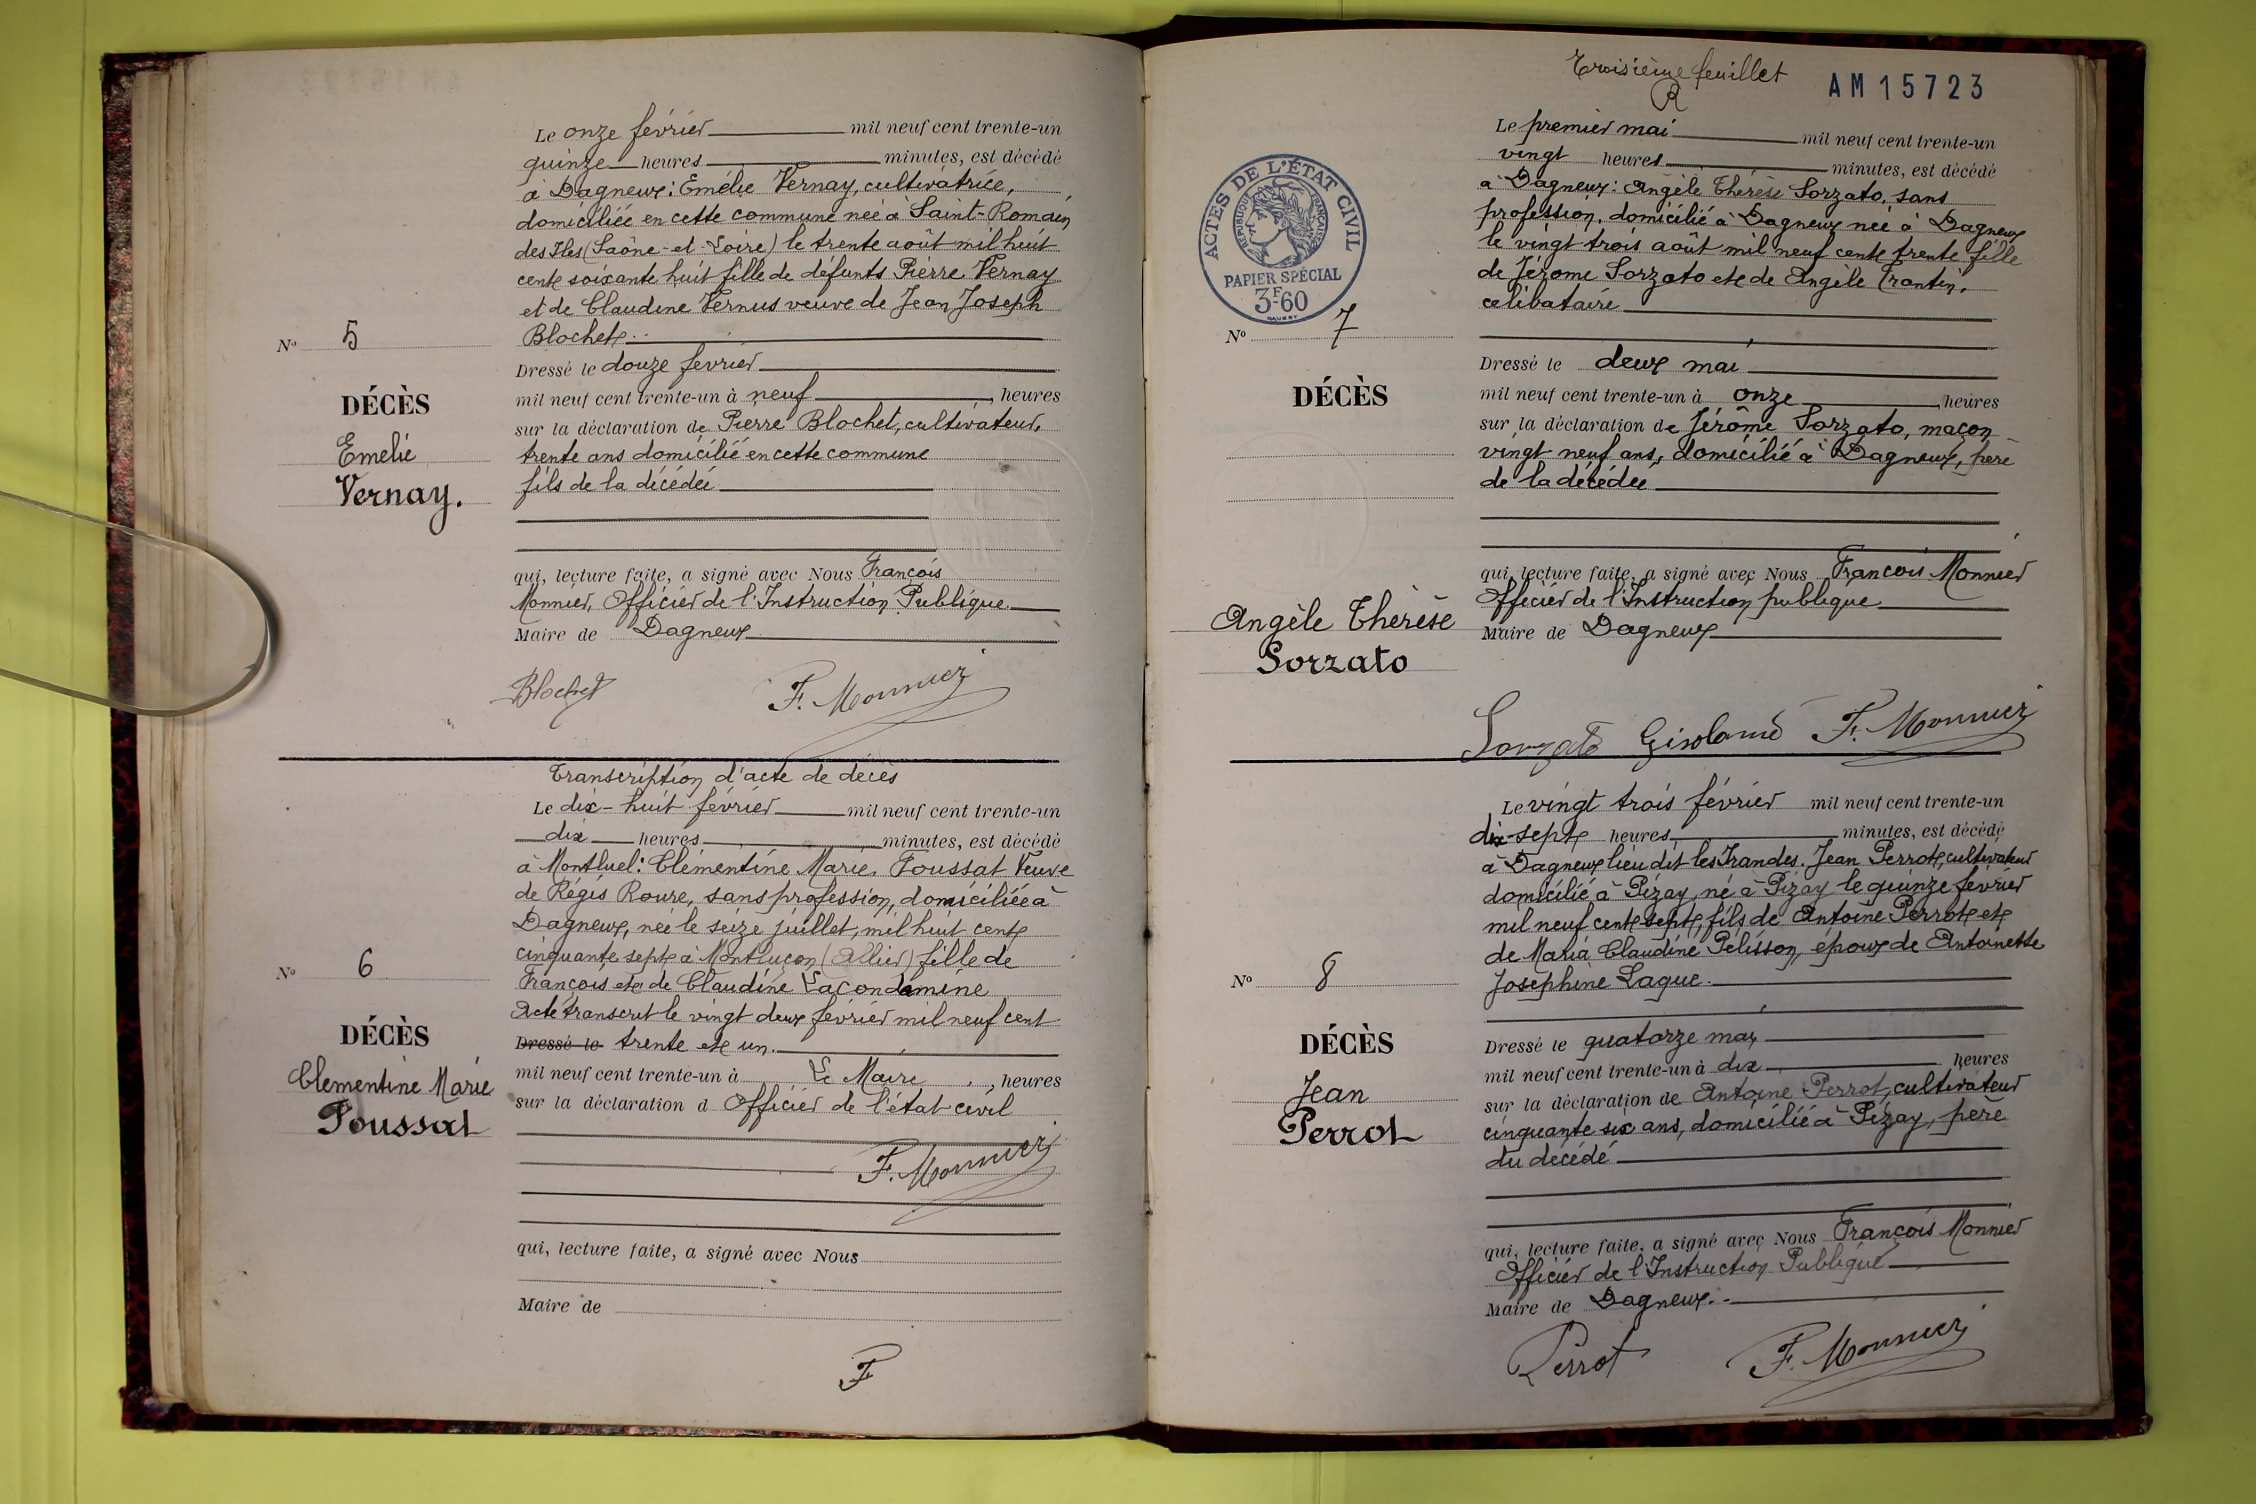 Le onze février mil neuf cent trente-un
quinze heures minutes, est décédé
à Dagneux: Emélie Vernay, cultivatrice,
domiciliée en cette commune née à Saint-Romain
des Iles (Saône-et-Loire) le trente août mil huit
cent soixante huit fille de défunts Pierre Vernay
et de Claudine Vernus veuve de Jean Joseph
Blochet
Nº 5
DÉCÈS
Emelie
Vernay.
Dressé le douze fevrier
mil neuf cent trente-un à neuf heures
sur la déclaration de Pierre Blochet, cultivateur,
trente ans domicilié en cette commune
fils de la décédée
qui, lecture faite, a signé avec Nous François
Monnier, Officier de l'Instruction Publique
Maire de Dagneux
Blochet F. Monnier
Transcription d'acte de décès
Le dix-huit février mil neuf cent trente-un
dix heures minutes, est décédé
à Montluel: Clémentine Marie Poussat Veuve
de Régis Roure, sans profession, domiciliée à
Dagneux, née le seize juillet, mil huit cent
cinquante sept à Montluçon (Allier) fille de
François et de Claudine Lacondamine
Acte transcrit le vingt deux février mil neuf cent
Dressé le trente et un.
mil neuf cent trente-un à Le Maire, heures
sur la déclaration d Officier de l'état civil
F. Monnier
Nº 6
DÉCÈS
Clementine Marie
Poussat
qui, lecture faite, a signé avec Nous
Maire de
Troisième feuillet
AM 15723
ACTES DE L'ÉTAT CIVIL
RÉPUBLIQUE FRANÇAISE
PAPIER SPÉCIAL
3F60
Le premier mai mil neuf cent trente-un
vingt heures minutes, est décédé
à Dagneux: Angèle Thérèse Sorzato, sans
profession, domicilié à Dagneux née à Dagneux
le vingt trois août mil neuf cent trente fille
de Jérome Sorzato et de Angèle Frantin,
celibataire
Nº 7
DÉCÈS
Angèle Thérèse
Sorzato
Dressé le deux mai
mil neuf cent trente-un à onze heures
sur la déclaration de Jérôme Sorzato, maçon
vingt neuf ans, domicilié à Dagneux, père
de la décédée
qui, lecture faite, a signé avec Nous François Monnier
Officier de l'Instruction publique
Maire de Dagneux
Sorzato Girolamo F. Monnier
Le vingt trois février mil neuf cent trente-un
dix-sept heures minutes, est décédé
à Dagneux lieu dit les Frandes. Jean Perrot, cultivateur
domicilié à Pizay, né à Pizay le quinze février
mil neuf cent sept, fils de Antoine Perrot et
de Maria Claudine Pélisson, époux de Antoinette
Joséphine Laque.
Nº 8
DÉCÈS
Jean
Perrot
Dressé le quatorze mai
mil neuf cent trente-un à dix heures
sur la déclaration de Antoine Perrot, cultivateur
cinquante six ans, domicilié à Pizay, père
du décédé
qui, lecture faite, a signé avec Nous François Monnier
Officier de l'Instruction Publique
Maire de Dagneux
Perrot F. Monnier